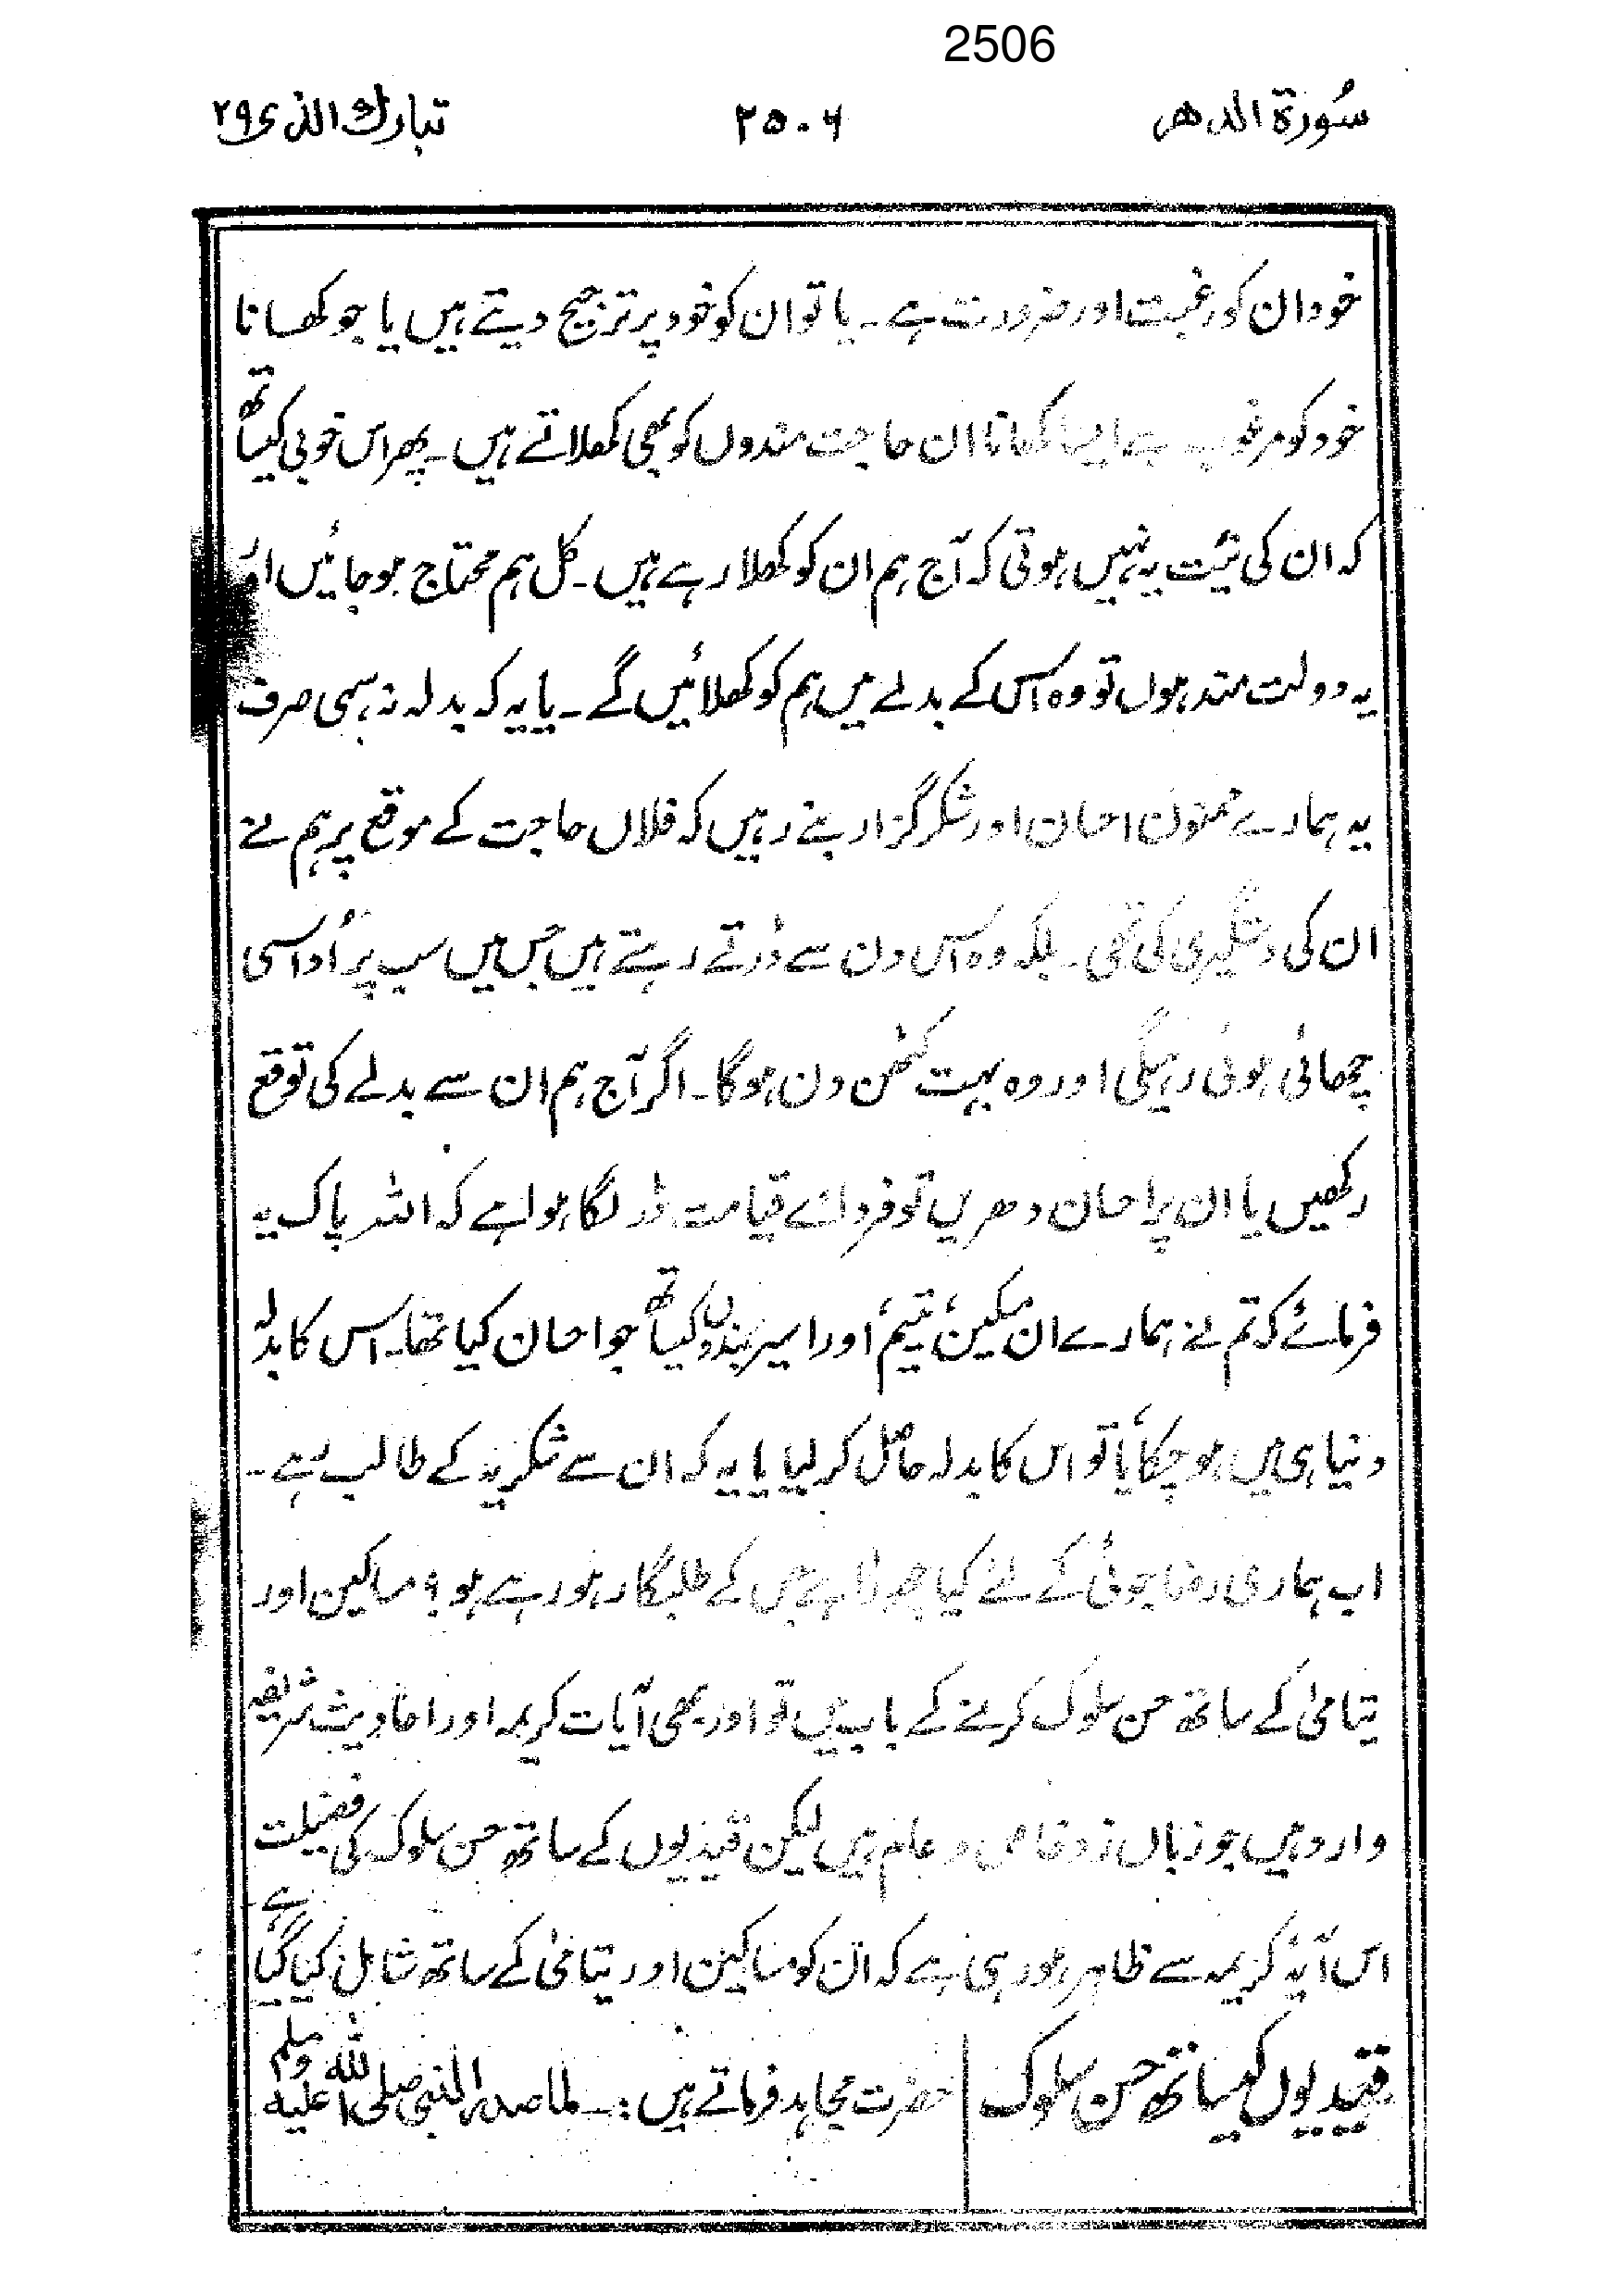 2506
سُورة الدهر ۲۵۰۶ تبارك الذى ۲۹
خود ان کو رغبت اور ضرورت ہے ۔ یا تو ان کو خود پر ترجیح دیتے ہیں یا جو کھانا
خود کو مرغوب ہے ایسا کھانا ان حاجت مندوں کو بھی کھلاتے ہیں ۔ پھر اس خوبی کیساتھ
کہ ان کی نیّت یہ نہیں ہوتی کہ آج ہم ان کو کھلا رہے ہیں ۔ کل ہم محتاج ہو جائیں اور
یہ دولت مند ہوں تو وہ اس کے بدلے میں ہم کو کھلائیں گے ۔ یا یہ کہ بدلہ نہ سہی صرف
یہ ہمارے ممنون احسان اور شکر گزار بنے رہیں کہ فلاں حاجت کے موقع پر ہم نے
ان کی دستگیری کی تھی ۔ بلکہ وہ اس دن سے ڈرتے رہتے ہیں جس میں سب پر اُداسی
چھائی ہوئی رہیگی اور وہ بہت کٹھن دن ہوگا ۔ اگر آج ہم ان سے بدلے کی توقع
رکھیں یا ان پر احسان دھریں تو فردائے قیامت ڈر لگا ہوا ہے کہ اللہ پاک یہ
فرمائے کہ تم نے ہمارے ان مسکین، یتیم، اور اسیر بندوں کیساتھ جو احسان کیا تھا ۔ اس کا بدلہ
دنیا ہی میں ہو چکا، یا تو اس کا بدلہ حاصل کر لیا یا یہ کہ ان سے شکریہ کے طالب رہے ۔
اب ہماری رضا جوئی کے لئے کیا چھوڑا ہے جس کے طلبگار ہو رہے ہو ؟ مساکین اور
یتامیٰ کے ساتھ حسن سلوک کرنے کے باب میں تو اور بھی آیات کریمہ اور احادیث شریفہ
وارد ہیں جو زباں زد خاص و عام ہیں لیکن قیدیوں کے ساتھ حسن سلوک کی فضیلت
اس آیۂ کریمہ سے ظاہر ہو رہی ہے کہ ان کو مساکین اور یتامیٰ کے ساتھ شامل کیا گیا ہے
قیدیوں کیساتھ حسن سلوک حضرت مجاہد فرماتے ہیں :۔ لما صدر النبى صلى الله عليه وسلم